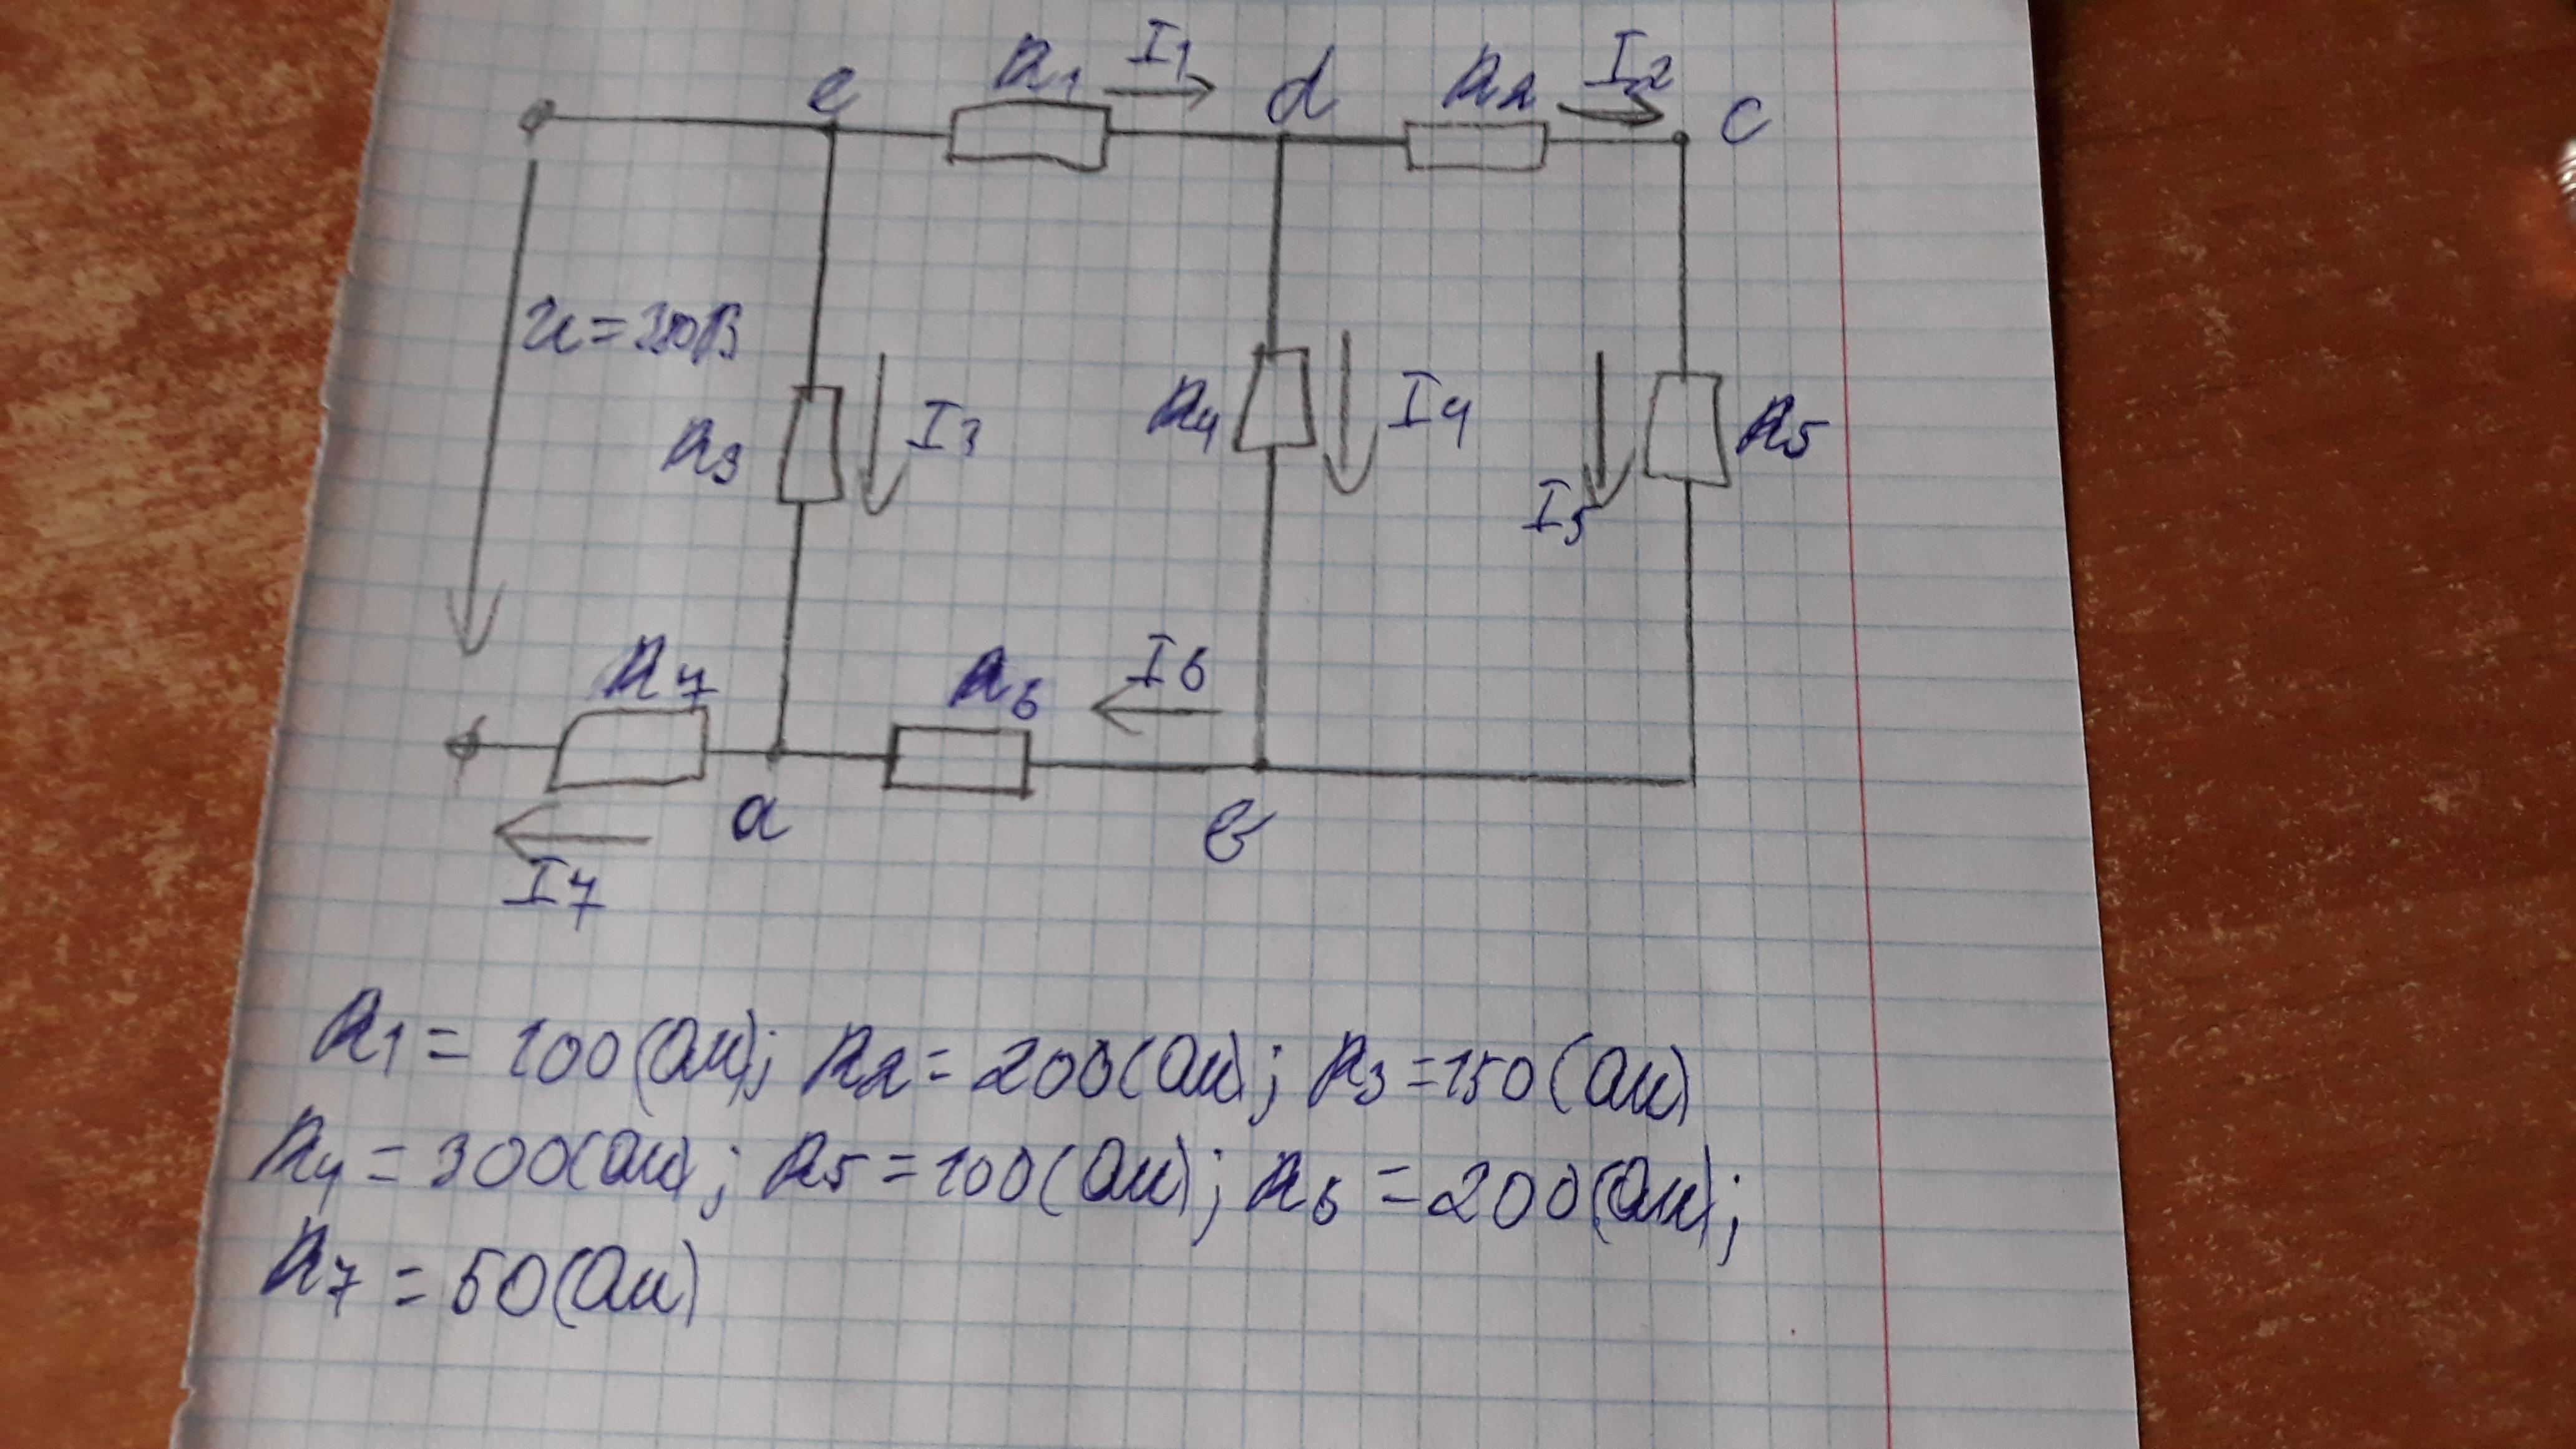 e R1 I1 d R2 I2 c
U=380В
R3 I3 R4 I4 I5 R5
R7 R6 I6
a в
I7
R1 = 100(Ом); R2 = 200(Ом); R3 =150(Ом)
R4 = 300(Ом); R5 =100(Ом); R6 =200(Ом);
R7 = 50(Ом)